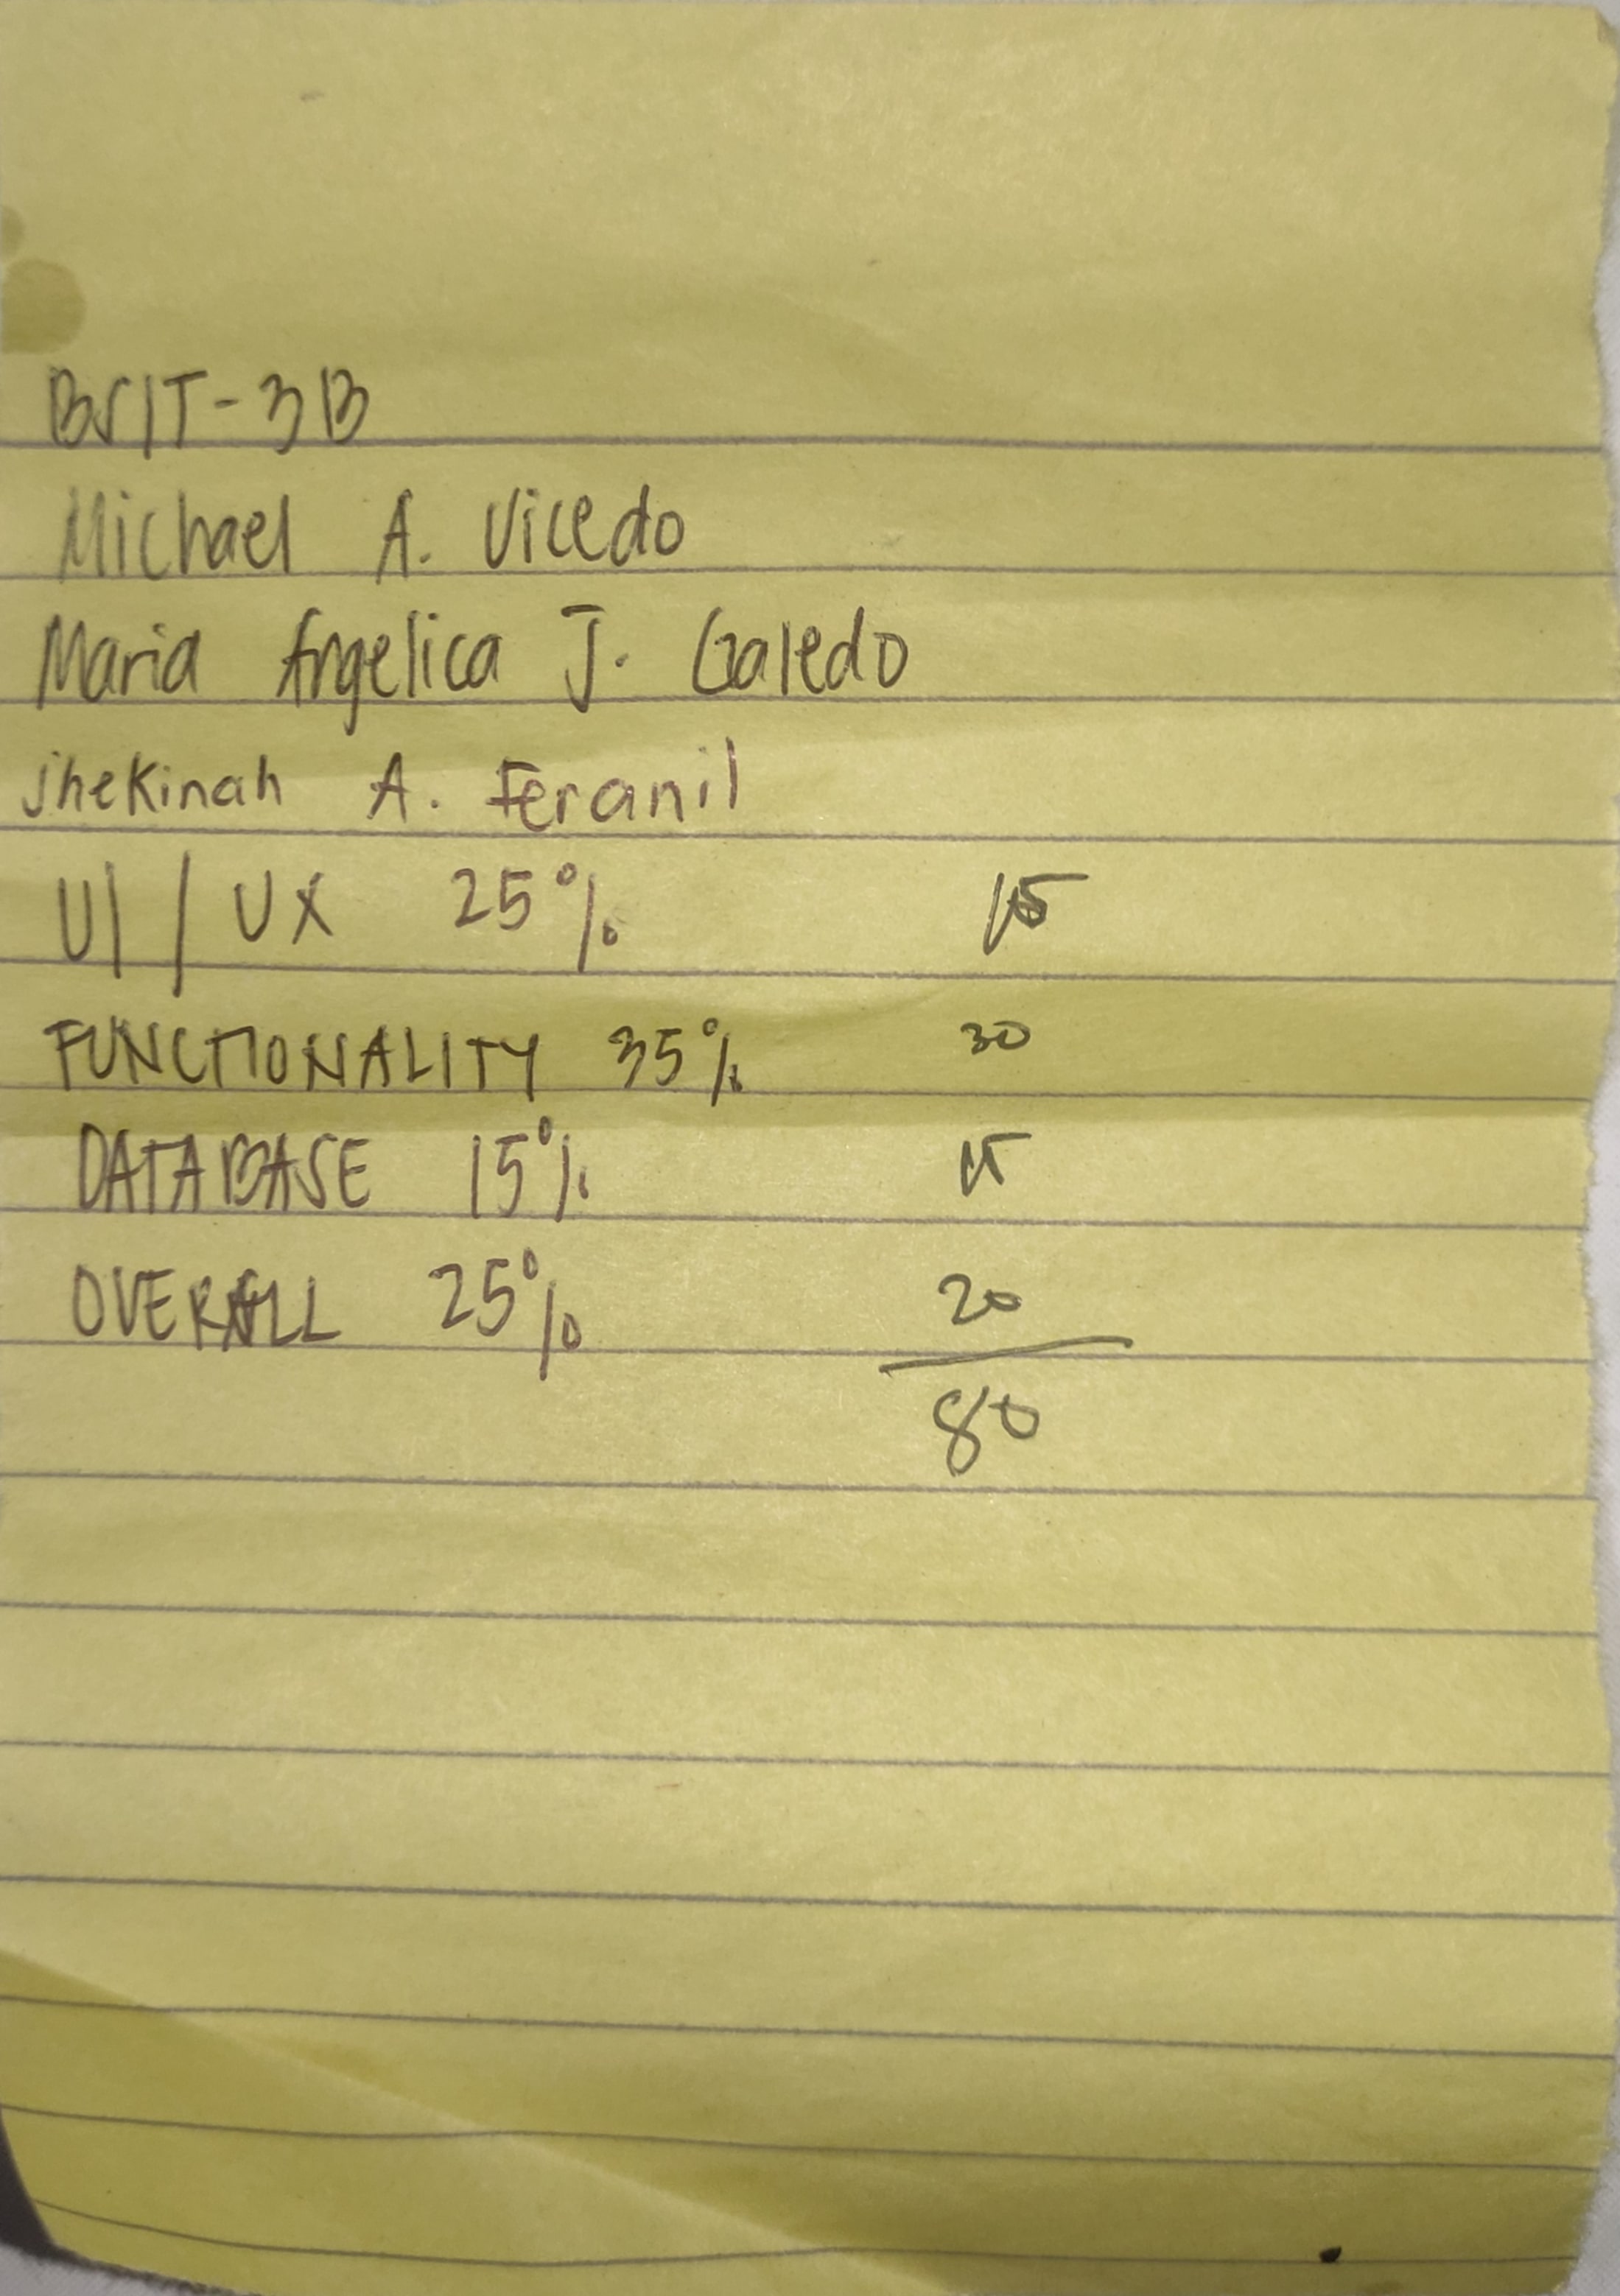 BSIT-3B
Michael A. Vicedo
Maria Angelica J. Galedo
jhekinah A. Feranil
UI / UX 25% 15
FUNCTIONALITY 35% 30
DATABASE 15% 15
OVERALL 25% 20
80